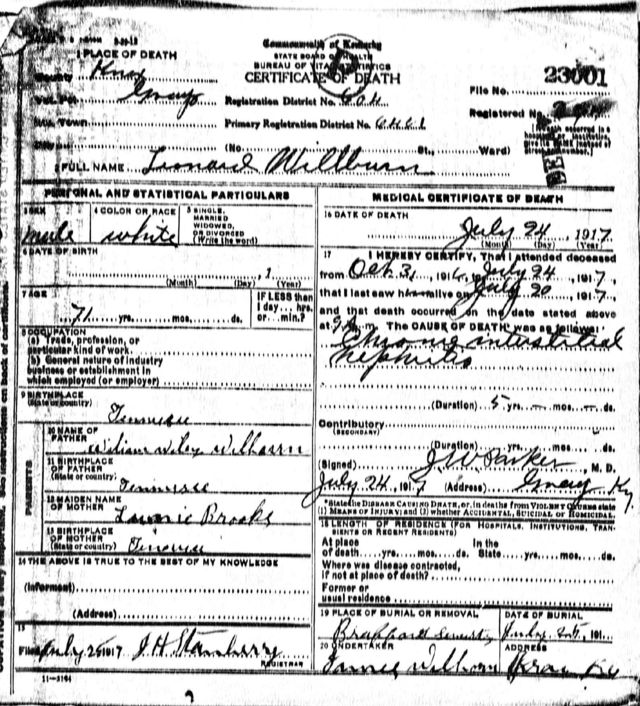 Commonwealth of Kentucky
STATE BOARD OF HEALTH
BUREAU OF VITAL STATISTICS
CERTIFICATE OF DEATH
1 PLACE OF DEATH
County Knox
Vot. Pct. Gray
Registration District No. 604
File No. 23001
Inc. Town
Primary Registration District No. 6461
Registered No.
City
(No. St., Ward)
2 FULL NAME Leonard Willburn
PERSONAL AND STATISTICAL PARTICULARS
3 SEX male
4 COLOR OR RACE white
5 SINGLE, MARRIED WIDOWED, OR DIVORCED (Write the word)
6 DATE OF BIRTH
(Month) (Day) , 1 (Year)
7 AGE
71 yrs. mos. ds.
IF LESS than 1 day... hrs. or... min.?
8 OCCUPATION
(a) Trade, profession, or
particular kind of work
(b) General nature of industry
business or establishment in
which employed (or employer)
9 BIRTHPLACE
(State or country) Tennessee
PARENTS
10 NAME OF FATHER William Wiley Willburn
11 BIRTHPLACE OF FATHER
(State or country) Tennessee
12 MAIDEN NAME OF MOTHER Brooks
13 BIRTHPLACE OF MOTHER
(State or country) Tennessee
14 THE ABOVE IS TRUE TO THE BEST OF MY KNOWLEDGE
(Informant)
(Address)
15
Filed July 25 1917 J. H. Stanberry
REGISTRAR
11-3184
MEDICAL CERTIFICATE OF DEATH
16 DATE OF DEATH
July 24, 1917
(Month) (Day) (Year)
17 I HEREBY CERTIFY, That I attended deceased
from Oct 31, 1916, to July 24, 1917,
that I last saw h alive on July 20, 1917,
and that death occurred on the date stated above
at m. The CAUSE OF DEATH was as follows:
Chronic interstitial
nephritis
(Duration) 5 yrs. mos. ds.
Contributory
(SECONDARY)
(Duration) yrs. mos. ds.
(Signed) J. W. Parker, M. D.
July 24, 1917 (Address) Gray Ky
*State the DISEASE CAUSING DEATH, or, in deaths from VIOLENT CAUSES state
(1) MEANS OF INJURY; and (2) whether ACCIDENTAL, SUICIDAL or HOMICIDAL.
18 LENGTH OF RESIDENCE (FOR HOSPITALS, INSTITUTIONS, TRANSIENTS OR RECENT RESIDENTS)
At place In the
of death yrs. mos. ds. State yrs. mos. ds.
Where was disease contracted,
if not at place of death?
Former or
usual residence
19 PLACE OF BURIAL OR REMOVAL
DATE OF BURIAL
July 25, 191
20 UNDERTAKER
ADDRESS